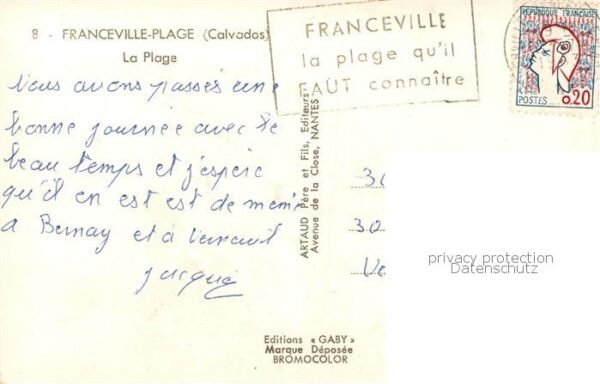 8 - FRANCEVILLE-PLAGE (Calvados)
La Plage
FRANCEVILLE
la plage qu'il
FAUT connaître
REPUBLIQUE FRANÇAISE
POSTES 0,20
Vous avons passés une
bonne journée avec le
beau temps et j'espère
qu'il en est est de meme
a Bernay et à
Jacques
ARTAUD Père et Fils, Editeurs
Avenue de la Close, NANTES
30
30
Ve
privacy protection
Datenschutz
Editions « GABY »
Marque Déposée
BROMOCOLOR